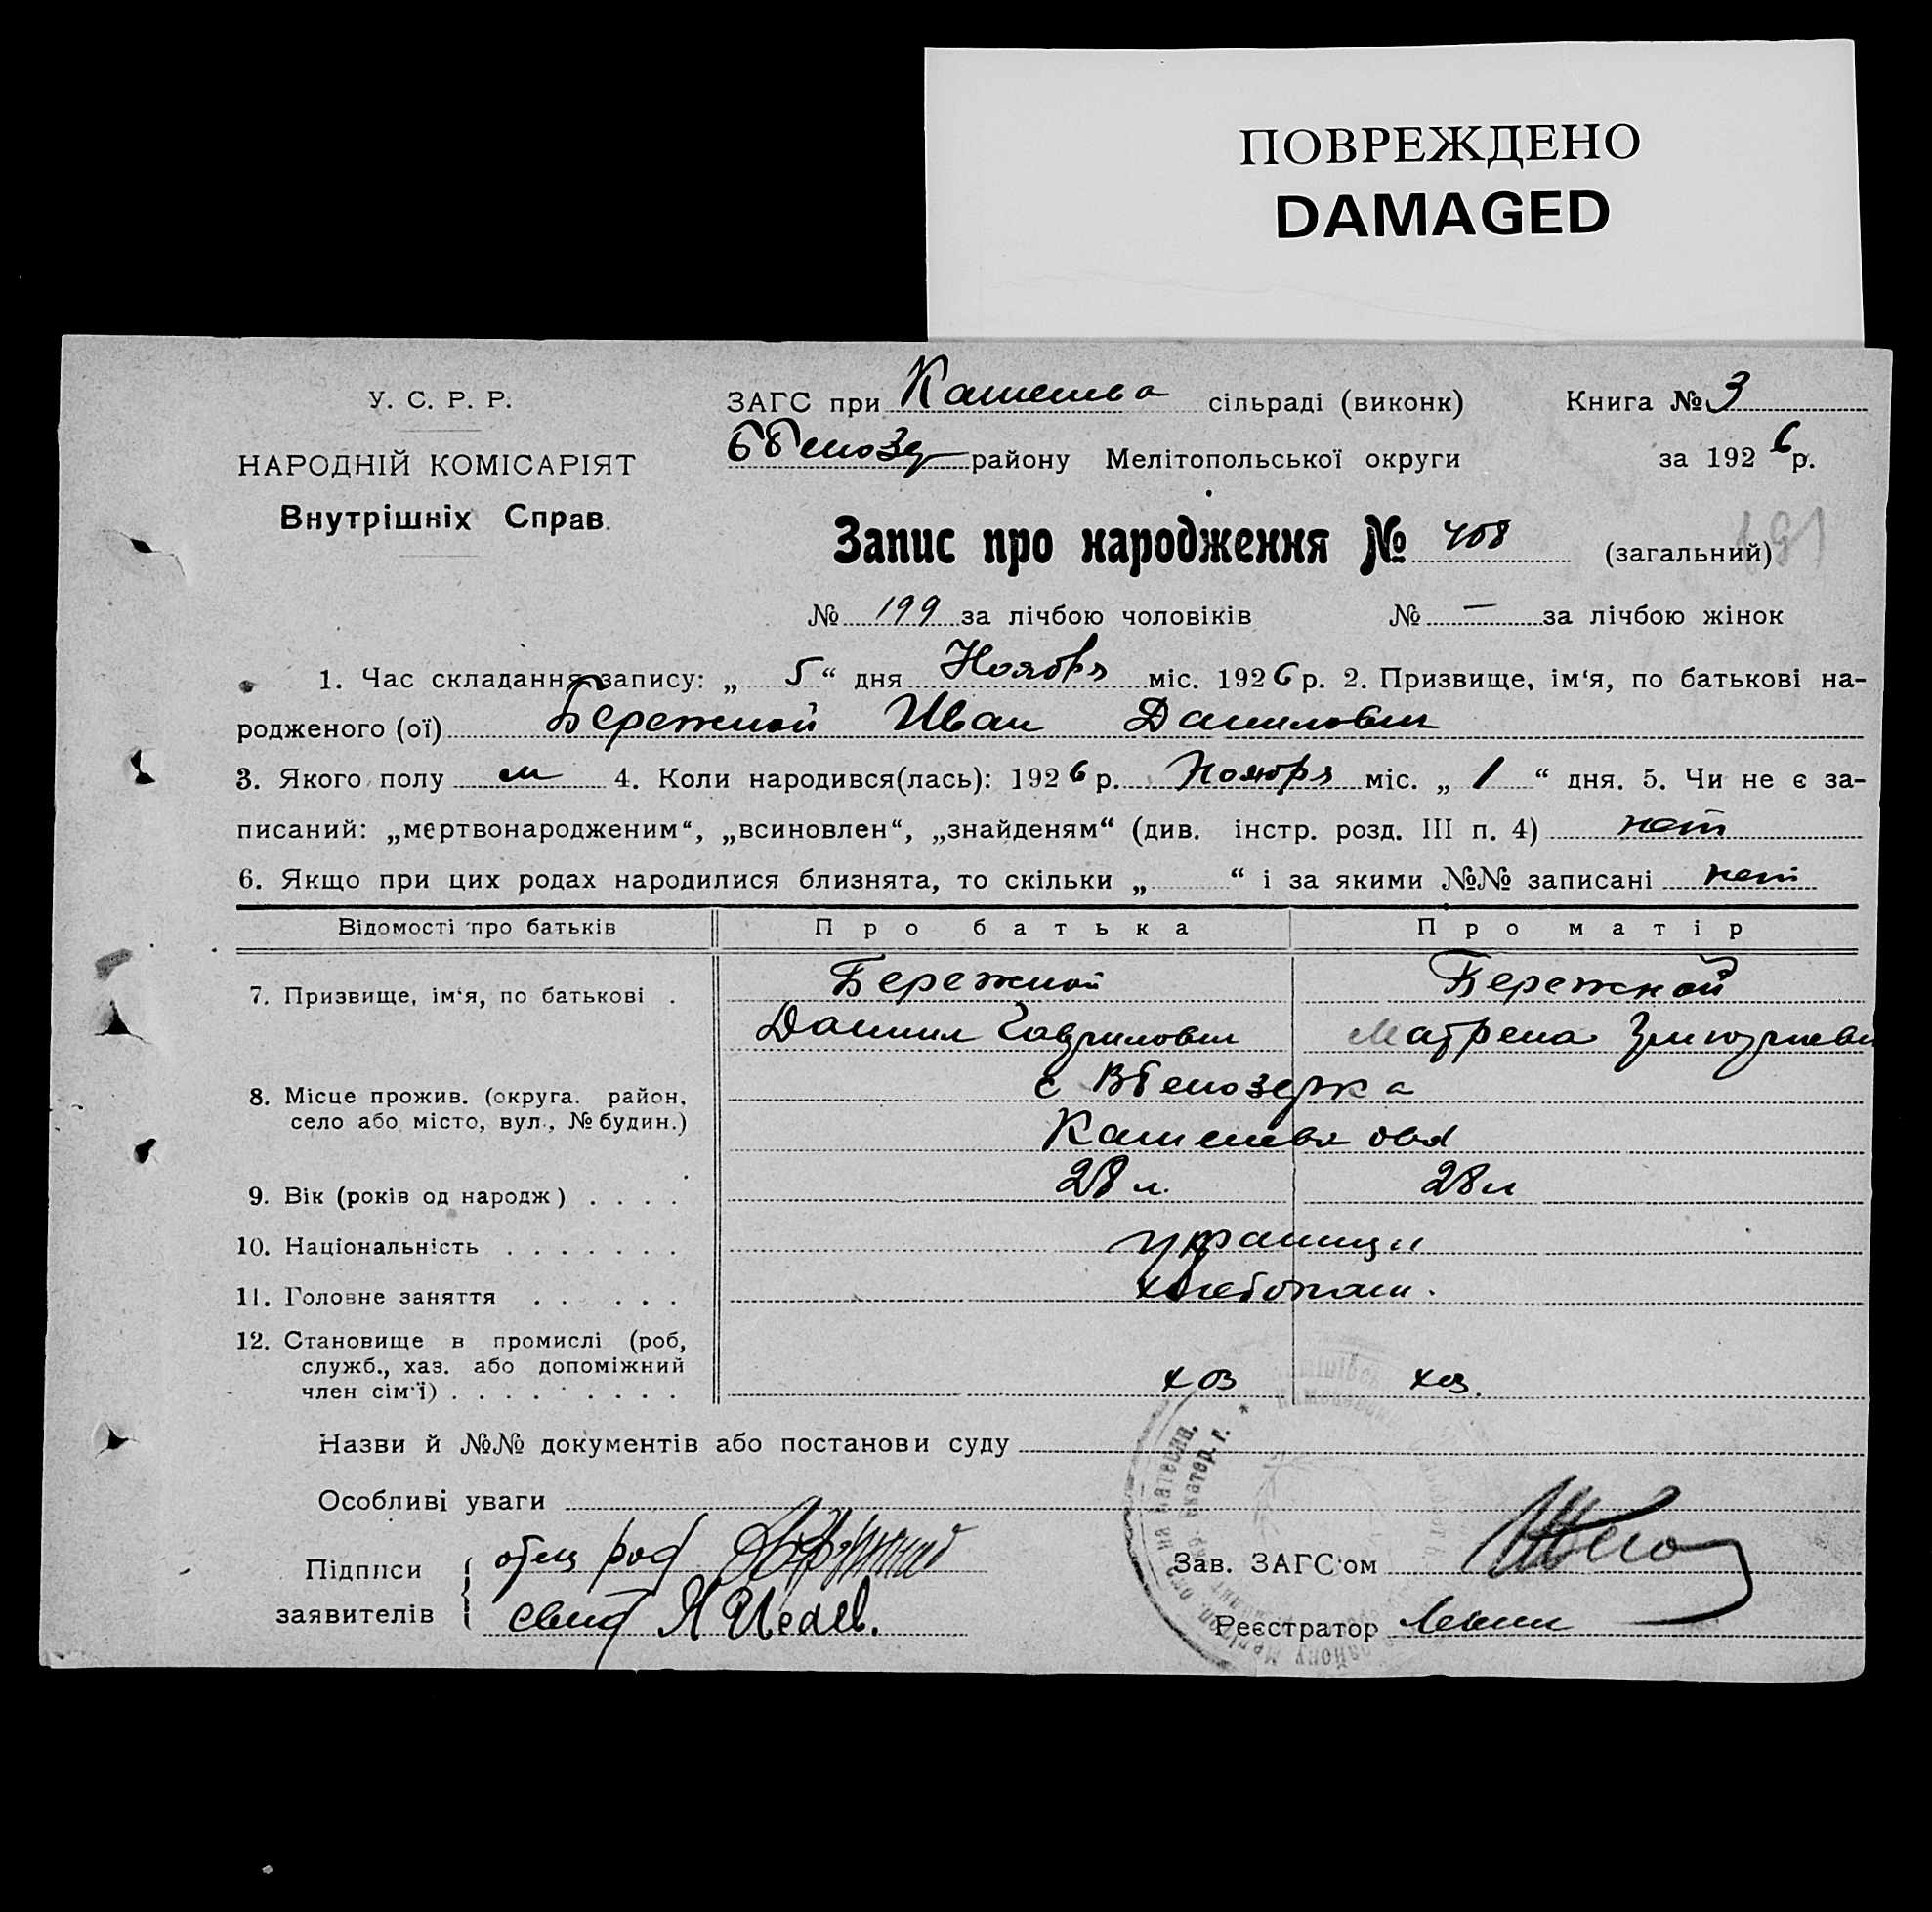 ПОВРЕЖДЕНО
DAMAGED
У. С. Р. Р.
НАРОДНІЙ КОМІСАРІЯТ
Внутрішніх Справ.
ЗАГС при сільраді (виконк) Книга № 3
району Мелітопольської округи за 1926 р.
Запис про народження № 408 (загальний)
№ 199 за лічбою чоловіків № — за лічбою жінок
1. Час складання запису: „ 5 “ дня Ноября міс. 1926 р. 2. Призвище, ім‘я, по батькові на-
родженого (ої) Бережной Иван Данилович
3. Якого полу м 4. Коли народився(лась): 1926 р. Ноября міс. „ 1 “ дня. 5. Чи не є за-
писаний: „мертвонародженим“, „всиновлен“, „знайденям“ (див. інстр. розд. III п. 4) нет
6. Якщо при цих родах народилися близнята, то скільки „ “ і за якими №№ записані нет
Відомості про батьків Про батька Про матір
7. Призвище, ім‘я, по батькові . Бережной Бережной
Данил Гаврилович Матрена
8. Місце прожив. (округа. район, с
село або місто, вул., № будин.)
9. Вік (років од народж) . . . . 28 л. 28 л
10. Національність . . . . . . . украинцы
11. Головне заняття . . . . . хлебопаш.
12. Становище в промислі (роб,
служб., хаз. або допоміжний
член сім‘ї) . . . . . . . . . хоз хоз.
Назви й №№ документів або постанови суду
Особливі уваги
Підписи отец
заявителів
Зав. ЗАГС‘ом
Реєстратор